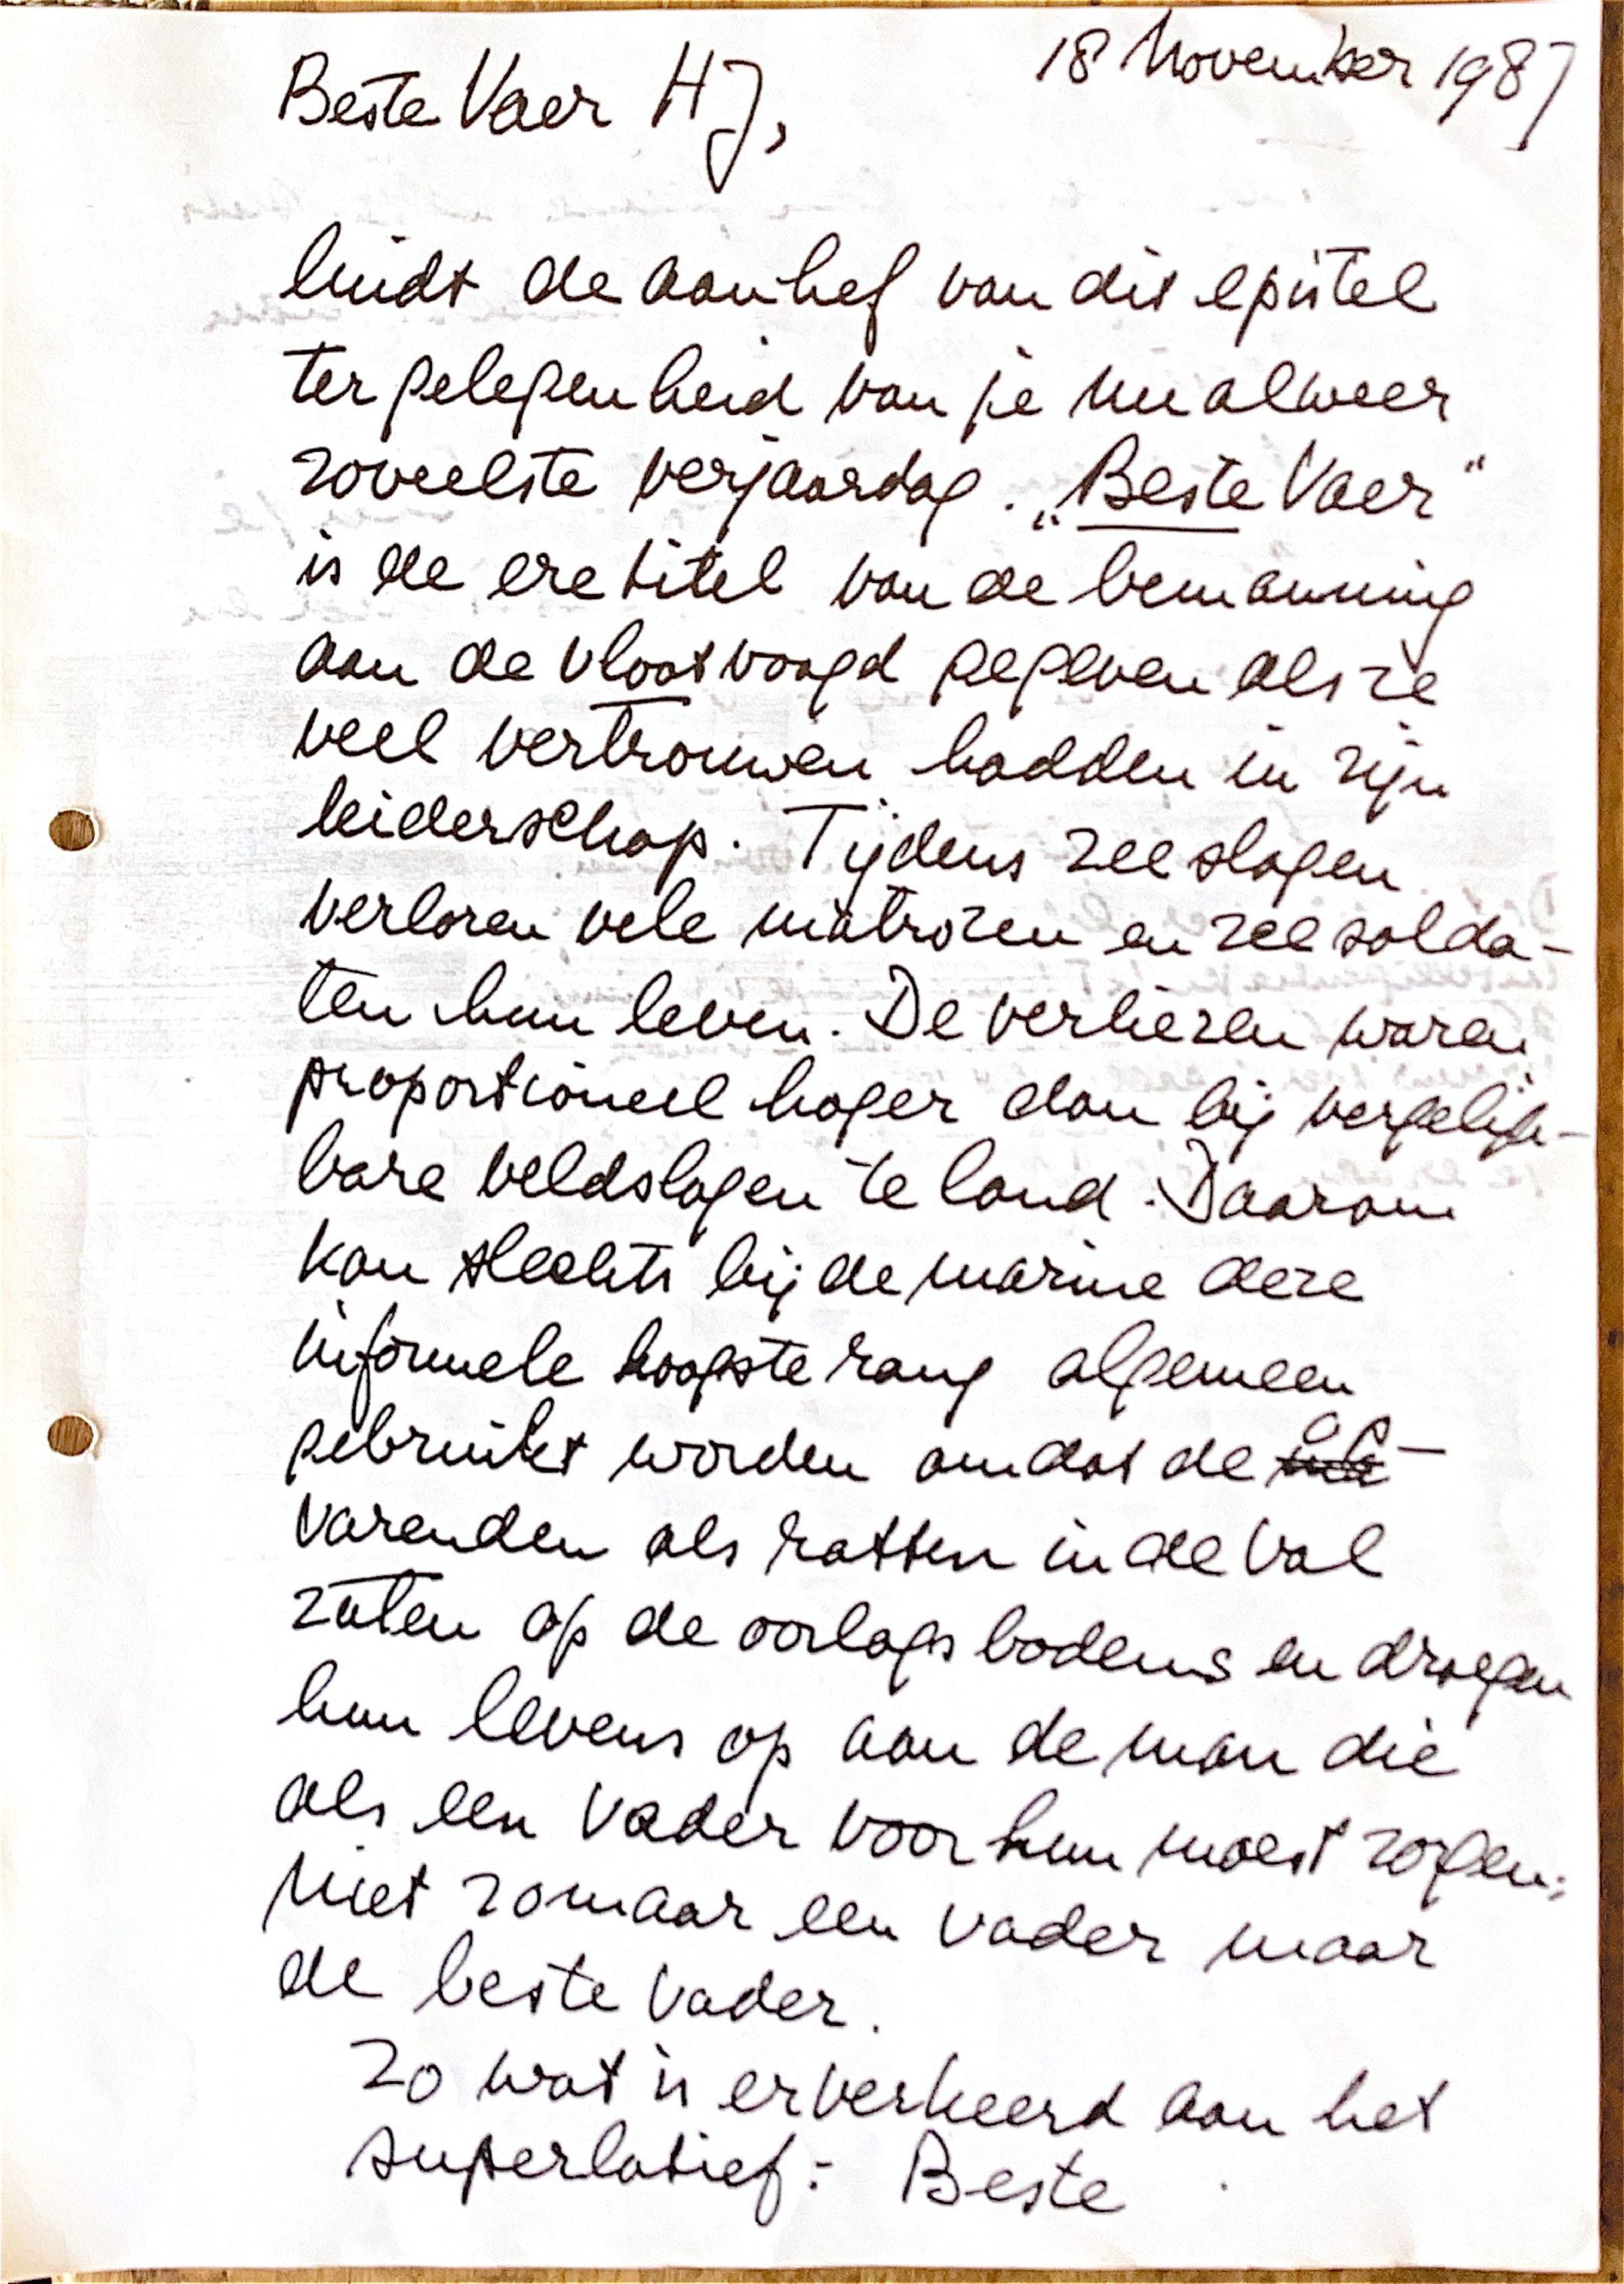 18 November 1987
Beste Vaer HJ,
luidt de aanhef van dit epistel
ter gelegenheid van je nu alweer
zoveelste verjaardag. „Beste Vaer"
is de eretitel van de bemanning
aan de vlootvoogd gegeven als ze
veel vertrouwen hadden in zijn
leiderschap. Tijdens zeeslagen
verloren vele matrozen en zeesolda-
ten hun leven. De verliezen waren
proportioneel hoger dan bij vergelijk-
bare veldslagen te land. Daarom
kan slechts bij de marine deze
informele hoogste rang algemeen
gebruikt worden omdat de op-
varenden als ratten in de val
zaten op de oorlogsbodems en droegen
hun levens op aan de man die
als een vader voor hun moest zorgen;
niet zomaar een vader maar
de beste vader.
Zo wat is er verkeerd aan het
superlatief: Beste